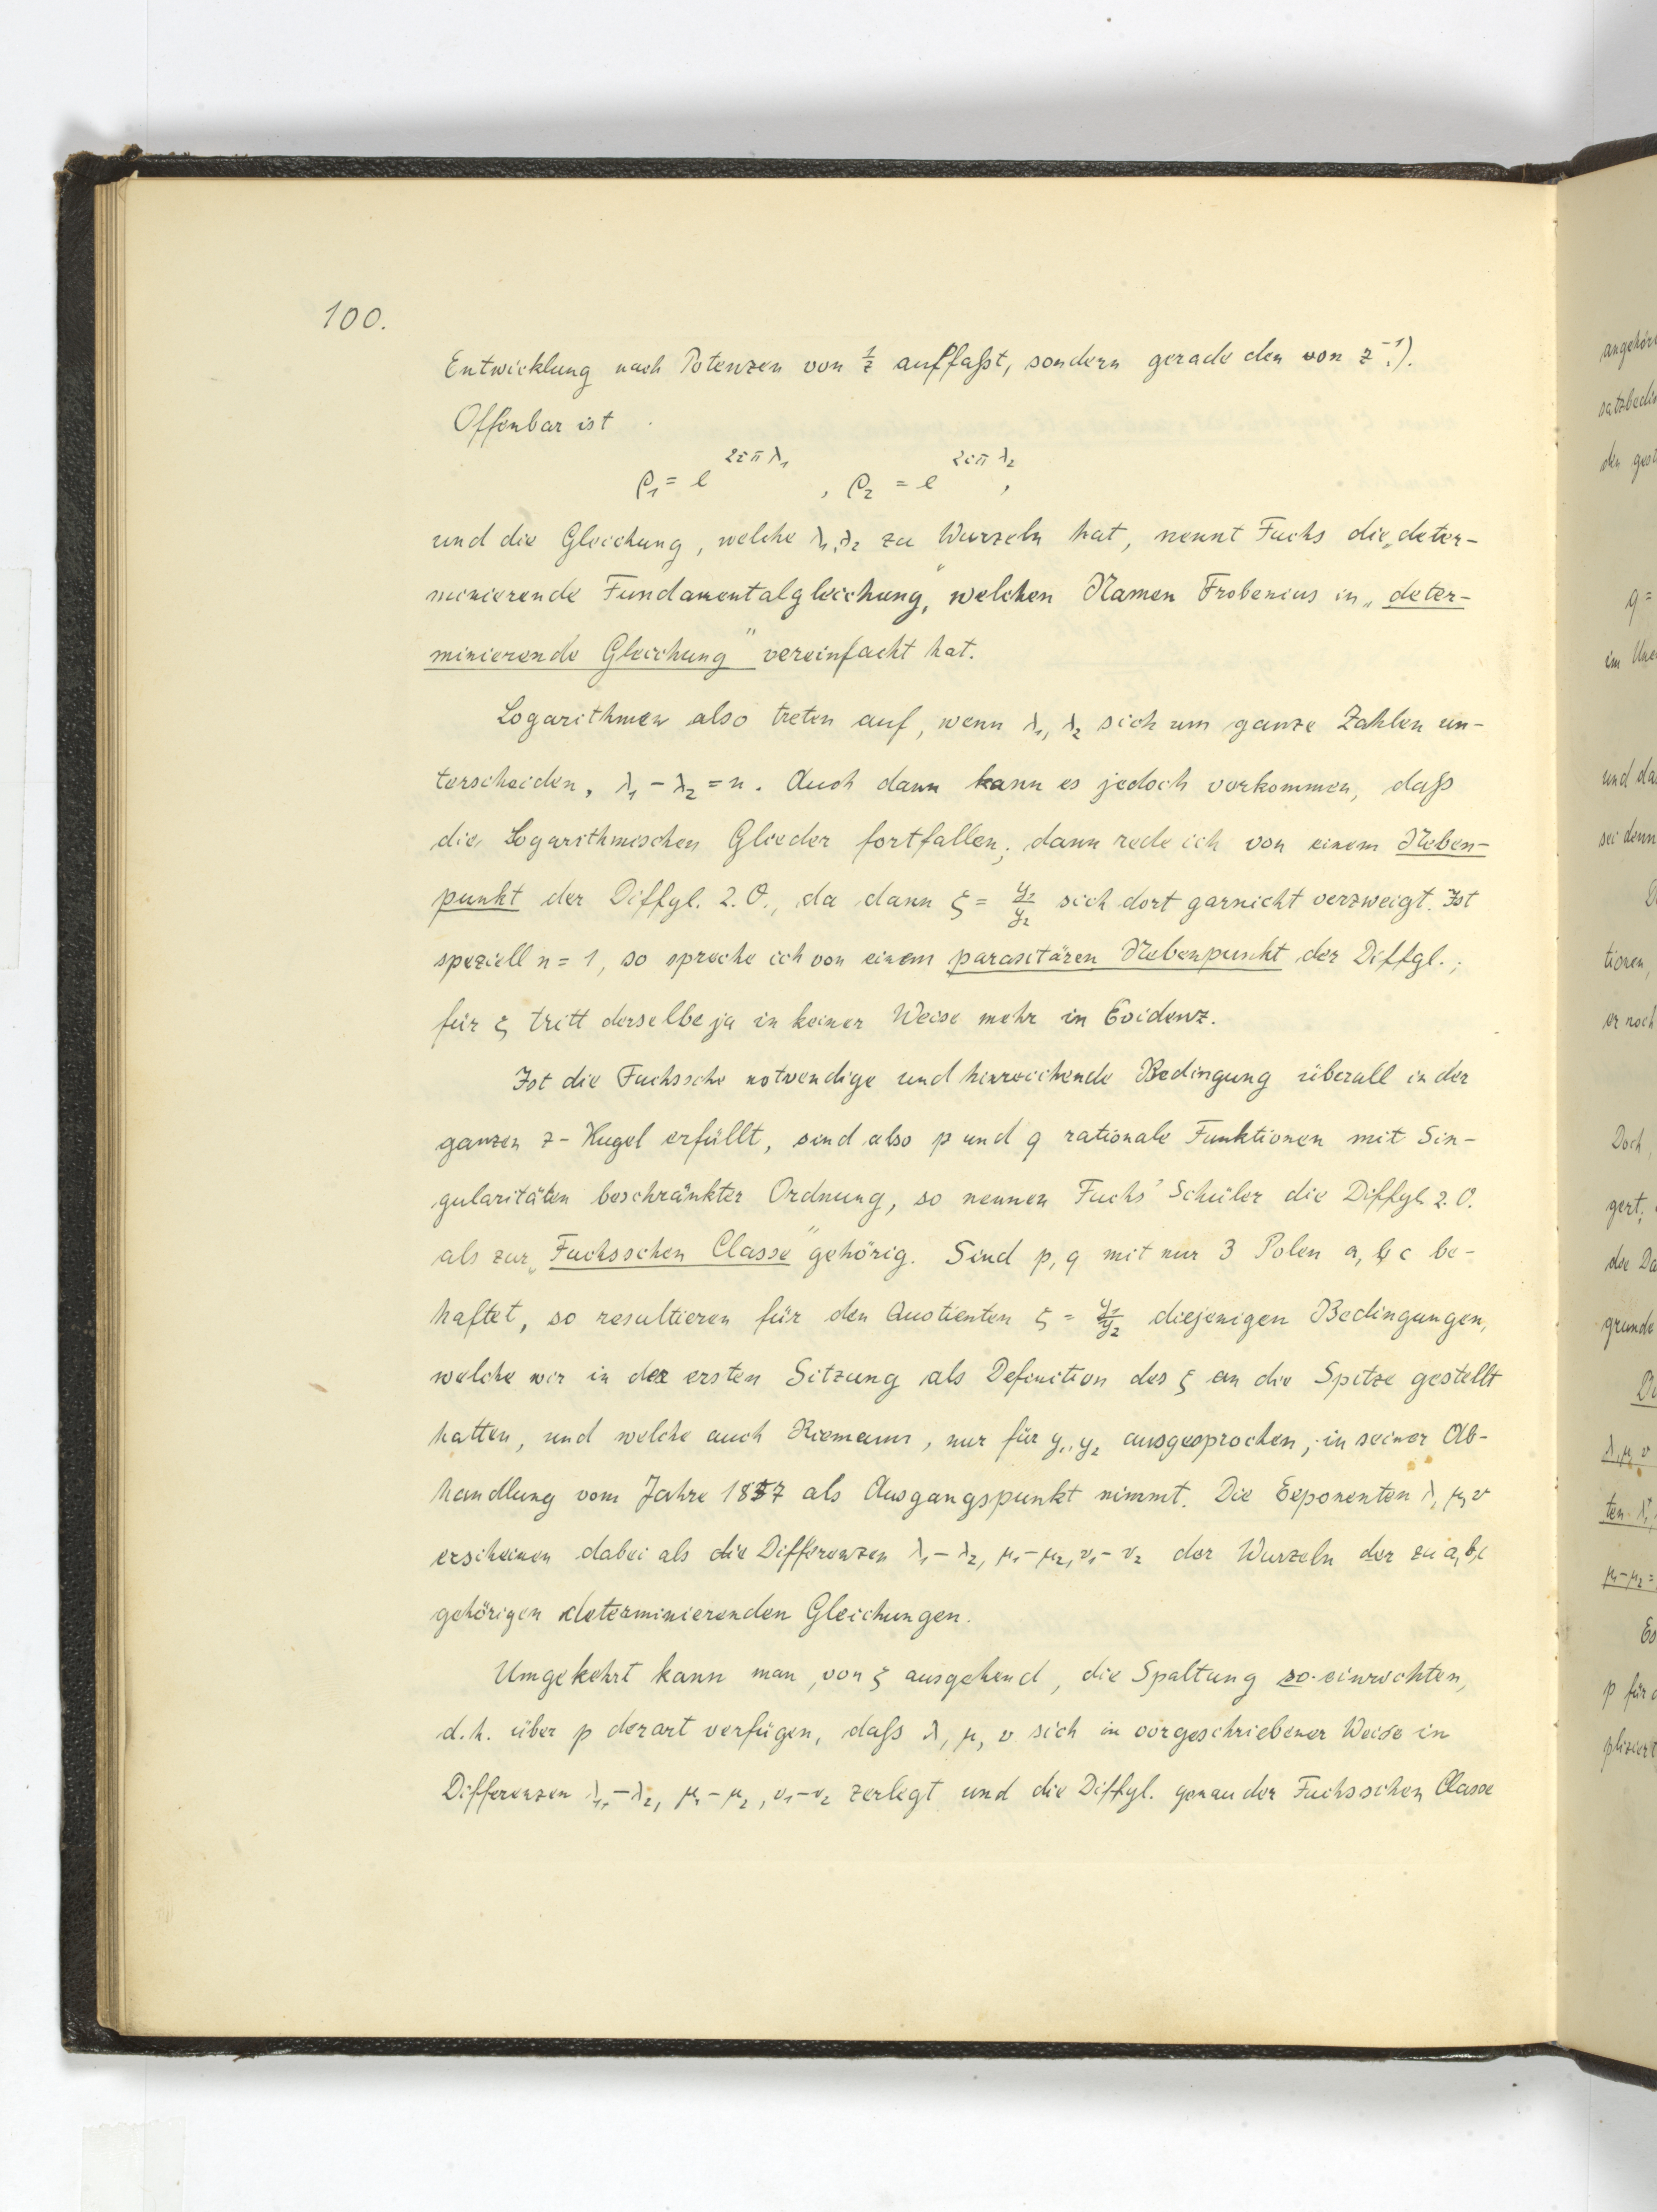 100.
Entwicklung nach Potenzen von 1/z auffaßt, sondern gerade den von z⁻¹.).
Offenbar ist
ρ₁ = e^{2iπλ₁}, ρ₂ = e^{2iπλ₂},
und die Gleichung, welche λ₁, λ₂ zu Wurzeln hat, nennt Fuchs die „deter-
minierende Fundamentalgleichung", welchen Namen Frobenius in „deter-
minierende Gleichung" vereinfacht hat.
Logarithmen also treten auf, wenn λ₁, λ₂ sich um ganze Zahlen un-
terscheiden, λ₁ - λ₂ = n. Auch dann kann es jedoch vorkommen, daß
die Logarithmischen Glieder fortfallen; dann rede ich von einem Neben-
punkt der Diffgl. 2. O., da dann ξ = y₁/y₂ sich dort garnicht verzweigt. Ist
speziell n = 1, so spreche ich von einem parasitären Nebenpunkt der Diffgl.;
für ξ tritt derselbe ja in keiner Weise mehr in Evidenz.
Ist die Fuchssche notwendige und hinreichende Bedingung überall in der
ganzen z-Kugel erfüllt, sind also p und q rationale Funktionen mit Sin-
gularitäten beschränkter Ordnung, so nennen Fuchs' Schüler die Diffgl. 2. O.
als zur „Fuchsschen Classe" gehörig. Sind p, q mit nur 3 Polen a, b, c be-
haftet, so resultieren für den Quotienten ξ = y₁/y₂ diejenigen Bedingungen,
welche wir in der ersten Sitzung als Definition des ξ an die Spitze gestellt
hatten, und welche auch Riemann, nur für y₁, y₂ ausgesprochen, in seiner Ab-
handlung vom Jahre 1857 als Ausgangspunkt nimmt. Die Exponenten λ, μ, ν
erscheinen dabei als die Differenzen λ₁ - λ₂, μ₁ - μ₂, ν₁ - ν₂ der Wurzeln der zu a, b, c
gehörigen determinierenden Gleichungen.
Umgekehrt kann man, von ξ ausgehend, die Spaltung so einrichten,
d.h. über p derart verfügen, daß λ, μ, ν sich in vorgeschriebener Weise in
Differenzen λ₁ - λ₂, μ₁ - μ₂, ν₁ - ν₂ zerlegt und die Diffgl. genau der Fuchsschen Classe